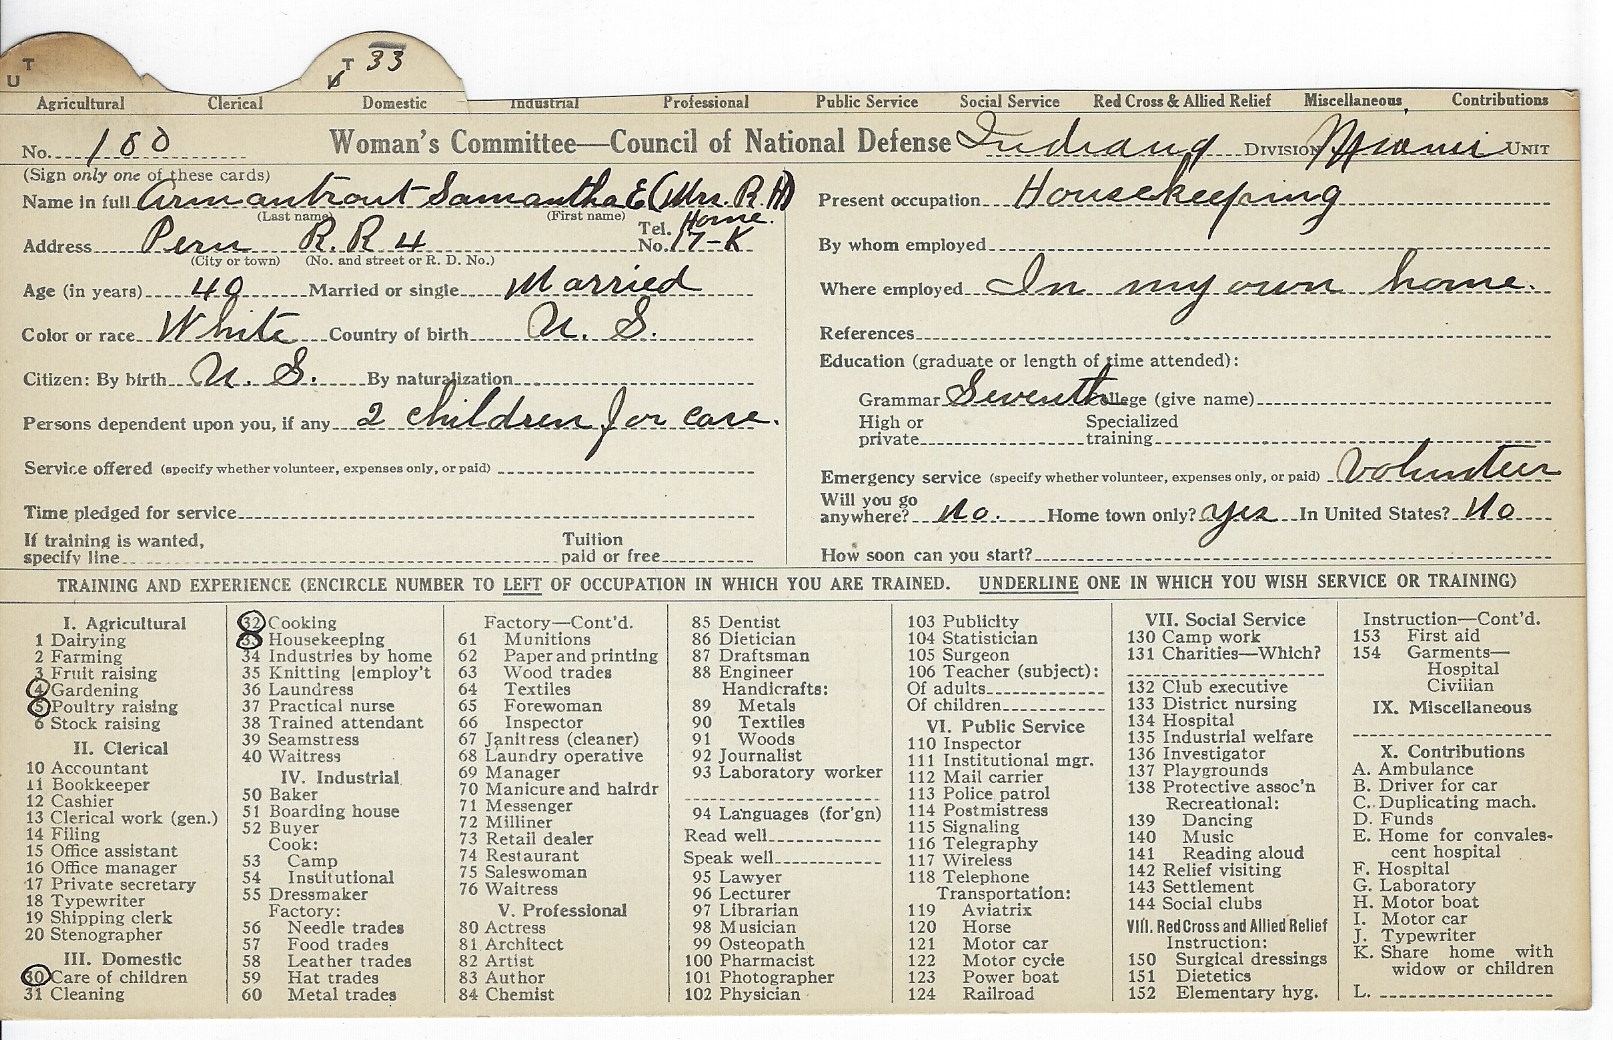 U T
V T 33
Agricultural Clerical Domestic Industrial Professional Public Service Social Service Red Cross & Allied Relief Miscellaneous Contributions
No. 180 Woman's Committee—Council of National Defense Indiana DIVISION Miami UNIT
(Sign only one of these cards)
Name in full Armantrout Samantha E (Mrs. R. H)
(Last name) (First name)
Address Peru R.R 4 Tel. No. Home. 17-K
(City or town) (No. and street or R. D. No.)
Age (in years) 40 Married or single Married
Color or race White Country of birth U. S.
Citizen: By birth U. S. By naturalization
Persons dependent upon you, if any 2 children for care.
Service offered (specify whether volunteer, expenses only, or paid)
Time pledged for service
If training is wanted, specify line Tuition paid or free
Present occupation Housekeeping
By whom employed
Where employed In my own home.
References
Education (graduate or length of time attended):
Grammar Seventh College (give name)
High or private Specialized training
Emergency service (specify whether volunteer, expenses only, or paid) Volunteer
Will you go anywhere? No. Home town only? Yes In United States? No
How soon can you start?
TRAINING AND EXPERIENCE (ENCIRCLE NUMBER TO LEFT OF OCCUPATION IN WHICH YOU ARE TRAINED. UNDERLINE ONE IN WHICH YOU WISH SERVICE OR TRAINING)
I. Agricultural
1 Dairying
2 Farming
3 Fruit raising
4 Gardening
5 Poultry raising
6 Stock raising
II. Clerical
10 Accountant
11 Bookkeeper
12 Cashier
13 Clerical work (gen.)
14 Filing
15 Office assistant
16 Office manager
17 Private secretary
18 Typewriter
19 Shipping clerk
20 Stenographer
III. Domestic
30 Care of children
31 Cleaning
32 Cooking
33 Housekeeping
34 Industries by home
35 Knitting [employ't
36 Laundress
37 Practical nurse
38 Trained attendant
39 Seamstress
40 Waitress
IV. Industrial
50 Baker
51 Boarding house
52 Buyer
Cook:
53 Camp
54 Institutional
55 Dressmaker
Factory:
56 Needle trades
57 Food trades
58 Leather trades
59 Hat trades
60 Metal trades
Factory—Cont'd.
61 Munitions
62 Paper and printing
63 Wood trades
64 Textiles
65 Forewoman
66 Inspector
67 Janitress (cleaner)
68 Laundry operative
69 Manager
70 Manicure and hairdr
71 Messenger
72 Milliner
73 Retail dealer
74 Restaurant
75 Saleswoman
76 Waitress
V. Professional
80 Actress
81 Architect
82 Artist
83 Author
84 Chemist
85 Dentist
86 Dietician
87 Draftsman
88 Engineer
Handicrafts:
89 Metals
90 Textiles
91 Woods
92 Journalist
93 Laboratory worker
94 Languages (for'gn)
Read well
Speak well
95 Lawyer
96 Lecturer
97 Librarian
98 Musician
99 Osteopath
100 Pharmacist
101 Photographer
102 Physician
103 Publicity
104 Statistician
105 Surgeon
106 Teacher (subject):
Of adults
Of children
VI. Public Service
110 Inspector
111 Institutional mgr.
112 Mail carrier
113 Police patrol
114 Postmistress
115 Signaling
116 Telegraphy
117 Wireless
118 Telephone
Transportation:
119 Aviatrix
120 Horse
121 Motor car
122 Motor cycle
123 Power boat
124 Railroad
VII. Social Service
130 Camp work
131 Charities—Which?
132 Club executive
133 District nursing
134 Hospital
135 Industrial welfare
136 Investigator
137 Playgrounds
138 Protective assoc'n
Recreational:
139 Dancing
140 Music
141 Reading aloud
142 Relief visiting
143 Settlement
144 Social clubs
VIII. Red Cross and Allied Relief
Instruction:
150 Surgical dressings
151 Dietetics
152 Elementary hyg.
Instruction—Cont'd.
153 First aid
154 Garments—
Hospital
Civilian
IX. Miscellaneous
X. Contributions
A. Ambulance
B. Driver for car
C. Duplicating mach.
D. Funds
E. Home for convales-
cent hospital
F. Hospital
G. Laboratory
H. Motor boat
I. Motor car
J. Typewriter
K. Share home with
widow or children
L.